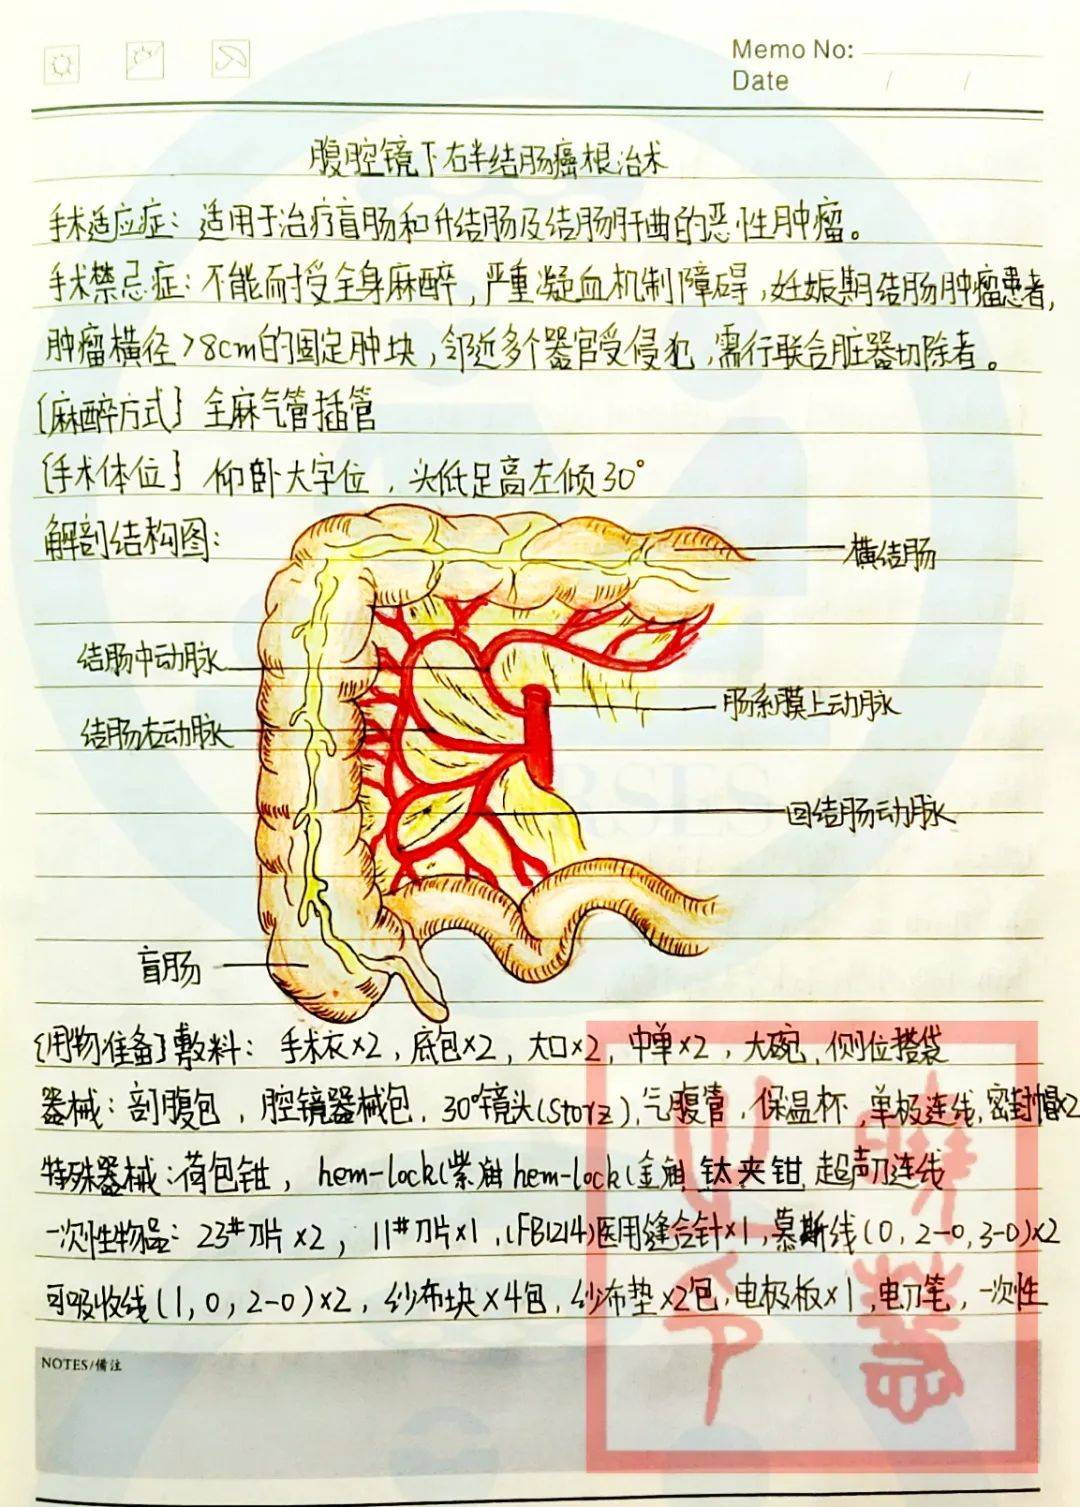 Memo No:
Date / /
腹腔镜下右半结肠癌根治术
手术适应症：适用于治疗盲肠和升结肠及结肠肝曲的恶性肿瘤。
手术禁忌症：不能耐受全身麻醉，严重凝血机制障碍，妊娠期结肠肿瘤患者，
肿瘤横径>8cm的固定肿块，邻近多个器官受侵犯，需行联合脏器切除者。
[麻醉方式] 全麻气管插管
[手术体位] 仰卧大字位，头低足高左倾30°
解剖结构图：
横结肠
结肠中动脉
肠系膜上动脉
结肠右动脉
回结肠动脉
盲肠
[用物准备] 敷料：手术衣×2，底包×2，大口×2，中单×2，大碗，侧位搭袋
器械：剖腹包，腔镜器械包，30°镜头(Storz)，气腹管，保温杯，单极连线，密封帽×2
特殊器械：荷包钳，hem-lock(紫) hem-lock(金) 钛夹钳 超声刀连线
一次性物品：23#刀片×2，11#刀片×1，(FB1214)医用缝合针×1，慕斯线(0，2-0，3-0)×2
可吸收线(1，0，2-0)×2，纱布块×4包，纱布垫×2包，电极板×1，电刀笔，一次性
NOTES/備注